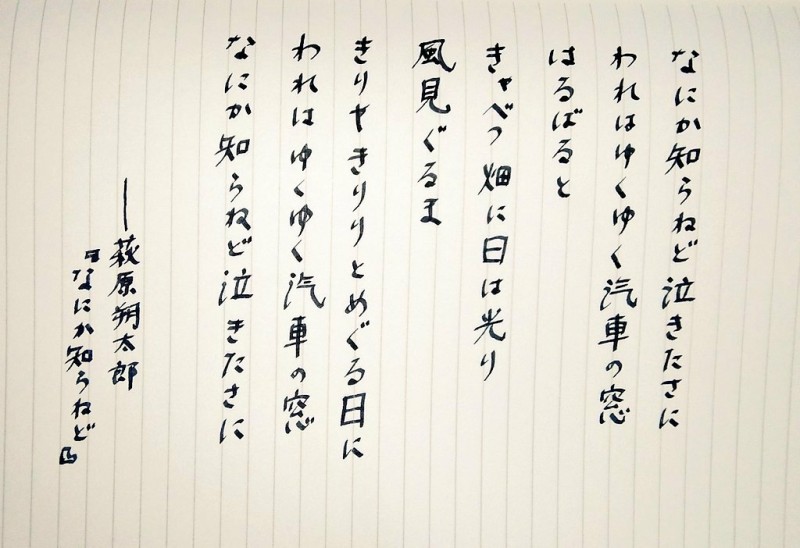 なにか知らねど泣きたさに
われはゆくゆく汽車の窓
はるばると
きゃべつ畑に日は光り
風見ぐるま
きりやきりりとめぐる日に
われはゆくゆく汽車の窓
なにか知らねど泣きたさに
――萩原朔太郎
『なにか知らねど』